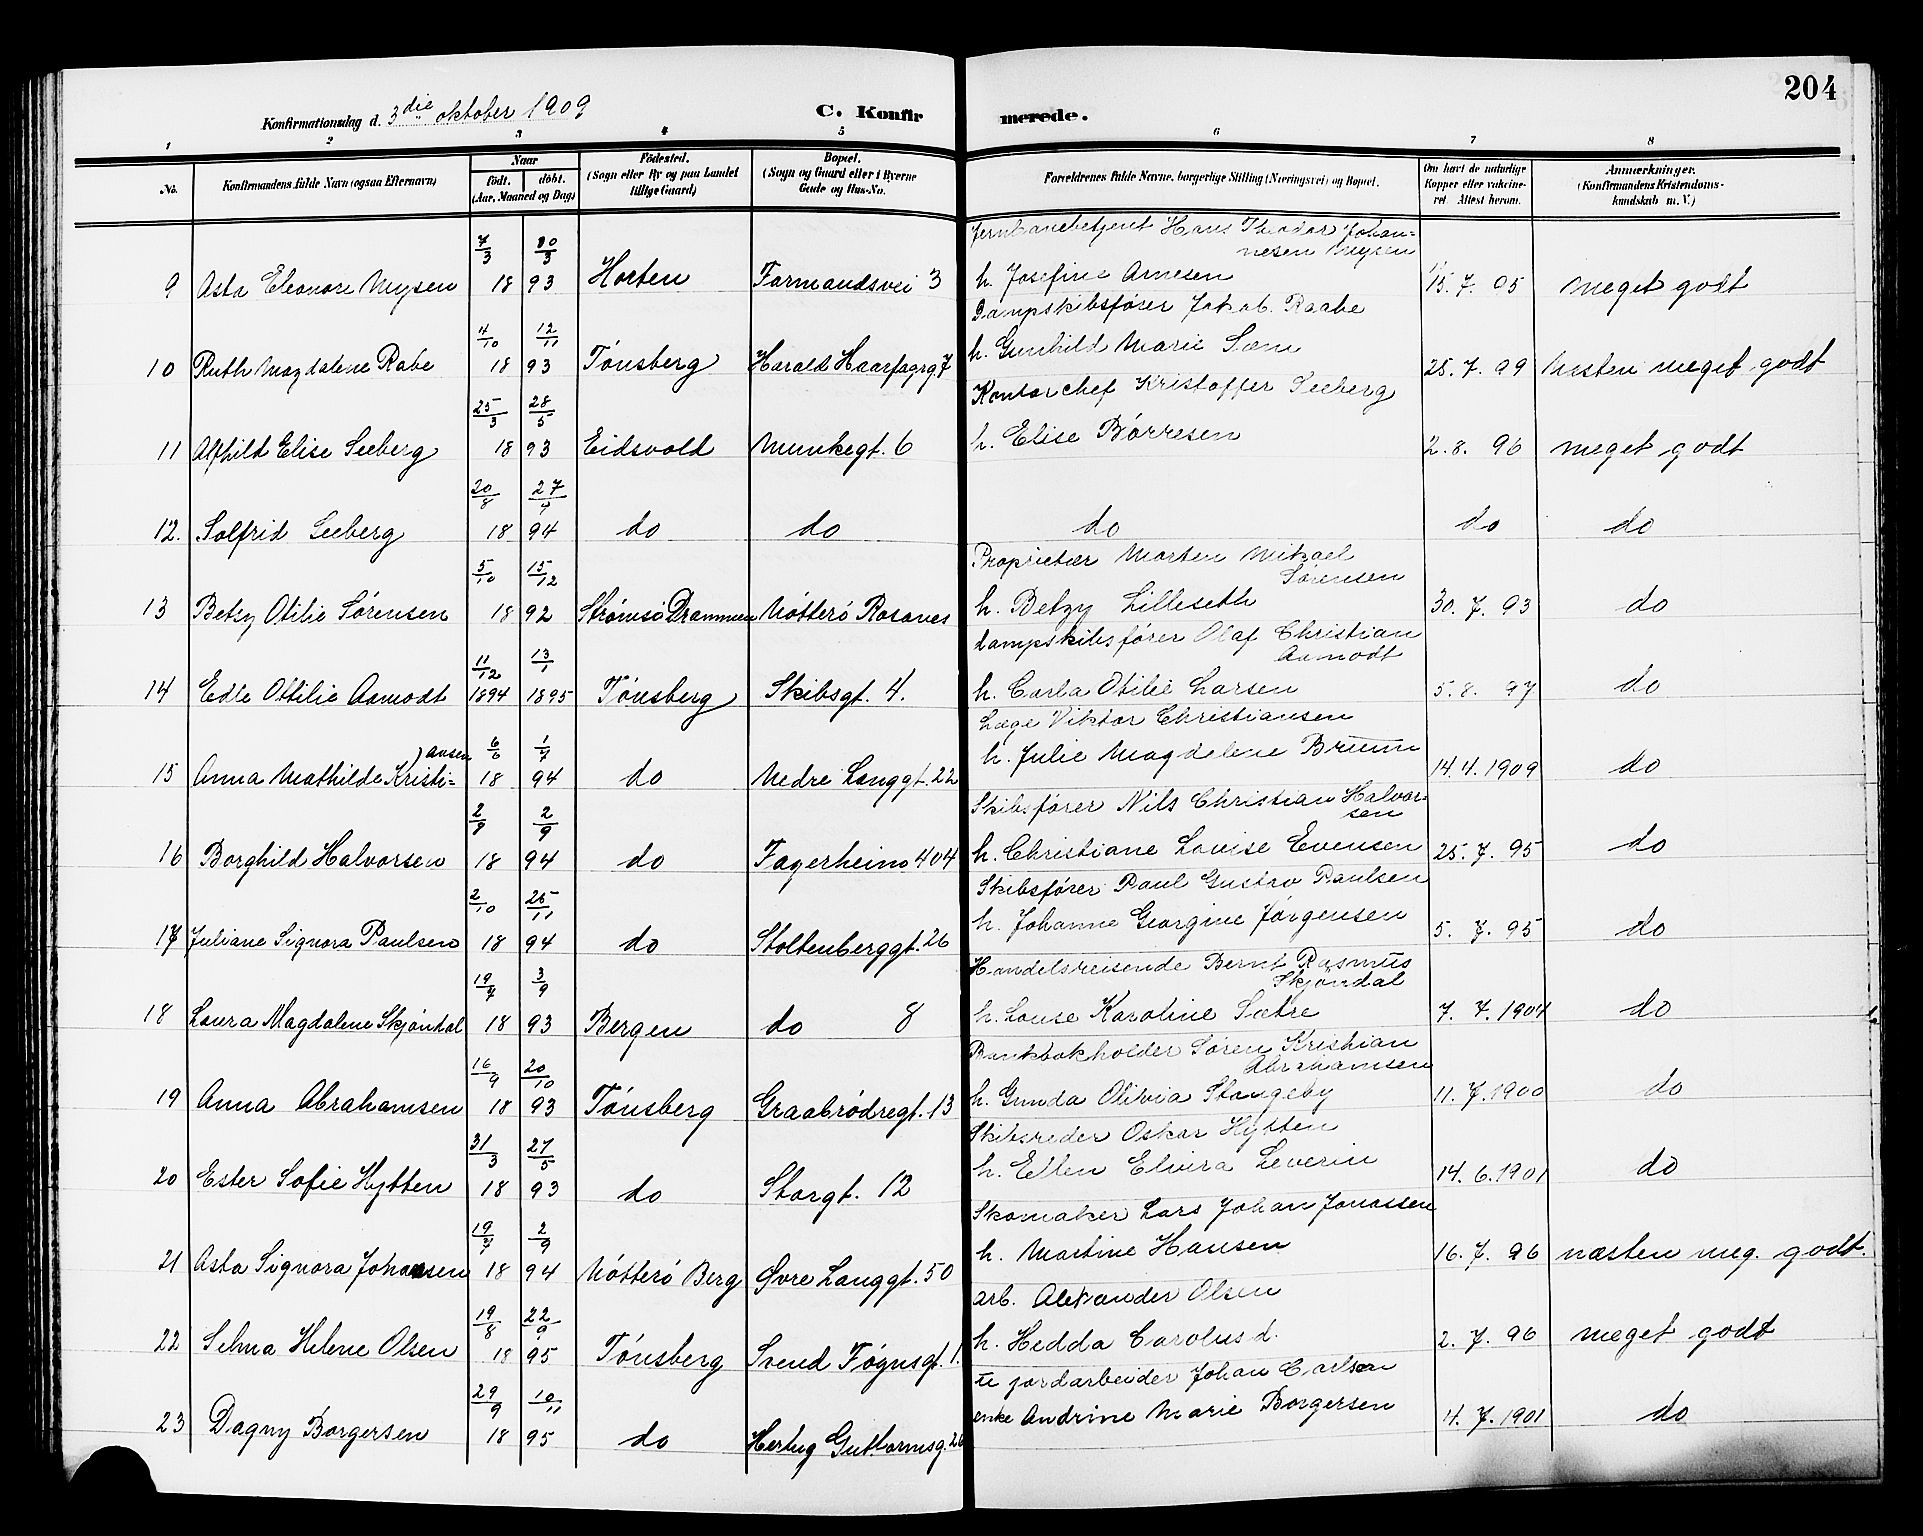 204
Konfirmationsdag d. 3die oktober 1909
C. Konfirmerede.
1 2 3 4 5 6 7 8
No. Konfirmandens fulde Navn (ogsaa Efternavn) Naar født. døbt. (Aar, Maaned og Dag) Fødested. (Sogn eller By og paa Landet tillige Gaard) Bopæl. (Sogn og Gaard eller i Byerne Gade og Hus-No. Forældrenes fulde Navne, borgerlige Stilling (Næringsvei) og Bopæl. Om havt de naturlige Kopper eller vaccineret Attest herom. Anmærkninger. (Konfirmandens Kristendomskundskab m. V.)
7/3 10/3 Jernbanebetjent Hans Theodor Johan-
nesen Mysen
9 Asta Eleonore Mysen 18 93 Horten Farmandsvei 3 h. Josefine Arnesen 15. 7. 05 meget godt
4/10 12/11 Dampskibsfører Jakob Raabe
10 Ruth Magdalene Rabe 18 93 Tønsberg Harald Haarfagrg. 7 h. Gunhild Marie Sem 25. 7. 99 næsten meget godt
25/3 28/5 Kontorchef Kristoffer Seeberg
11 Alfhild Elise Seeberg 18 93 Eidsvold Munkegt. 6 h. Elise Børresen 2. 8. 96 meget godt
20/8 27/
12. Solfrid Seeberg 18 94 do do do do do
5/10 15/12 Proprietær Morten Mikael
Sørensen
13 Betzy Otilie Sørensen 18 92 Strømsø Drammen Nøtterø Rosanes h. Betzy Lilleseth 30. 7. 93 do
11/12 13/1 dampskibsfører Olaf Christian
Aamodt
14 Edle Ottilie Aamodt 1894 1895 Tønsberg Skibsgt. 4. h. Carla Otilie Larsen 5. 8. 97 do
6/6 1/7 Læge Viktor Christiansen
15 Anna Mathilde Kristi-ansen 18 94 do Nedre Langgt. 22 h. Julie Magdelene Bruun 14. 4. 1909 do
2/8 2/9 Skibsfører Nils Christian Halvor-
sen
16 Borghild Halvorsen 18 94 do Fagerheim 404 h. Christiane Lovise Evensen 25. 7. 95 do
2/10 25/11 Skibsfører Paul Gustav Paulsen
17 Juliane Signora Paulsen 18 94 do Stoltenberggt. 26 h. Johanne Georgine Jørgensen 5. 7. 95 do
19/7 3/9 Handelsreisende Bernt Rasmus
Skjøndal
18 Laura Magdalene Skjøndal 18 93 Bergen do 8 h. Louse Karoline Sætre 7. 7. 1904 do
16/9 20/10 Bankbokholder Søren Kristian
Abrahamsen
19 Anna Abrahamsen 18 93 Tønsberg Graabrødregt. 13 h. Gunda Olivia Stangeby 11. 7. 1900 do
31/3 27/5 Skibsreder Oskar Hytten
20 Ester Sofie Hytten 18 93 do Storgt. 12 h. Ellen Elvira Leverin 14. 6. 1901 do
19/7 2/9 Skomaker Lars Johan Jonassen
21 Asta Signora Johansen 18 94 Nøtterø Berg Øvre Langgt. 50 h. Martine Hansen 16. 7. 96 næsten meg. godt.
19/8 22/9 arb. Alexander Olsen
22 Selma Helene Olsen 18 95 Tønsberg Svend Føynsgt. 1. h. Hedda Carolusd. 2. 7. 96 meget godt
29/9 10/11 jordarbeider Johan Carlsen
23 Dagny Borgersen 18 95 do Hertug Guttormsg. 26 enke Andrine Marie Borgersen 11. 7. 1901 do